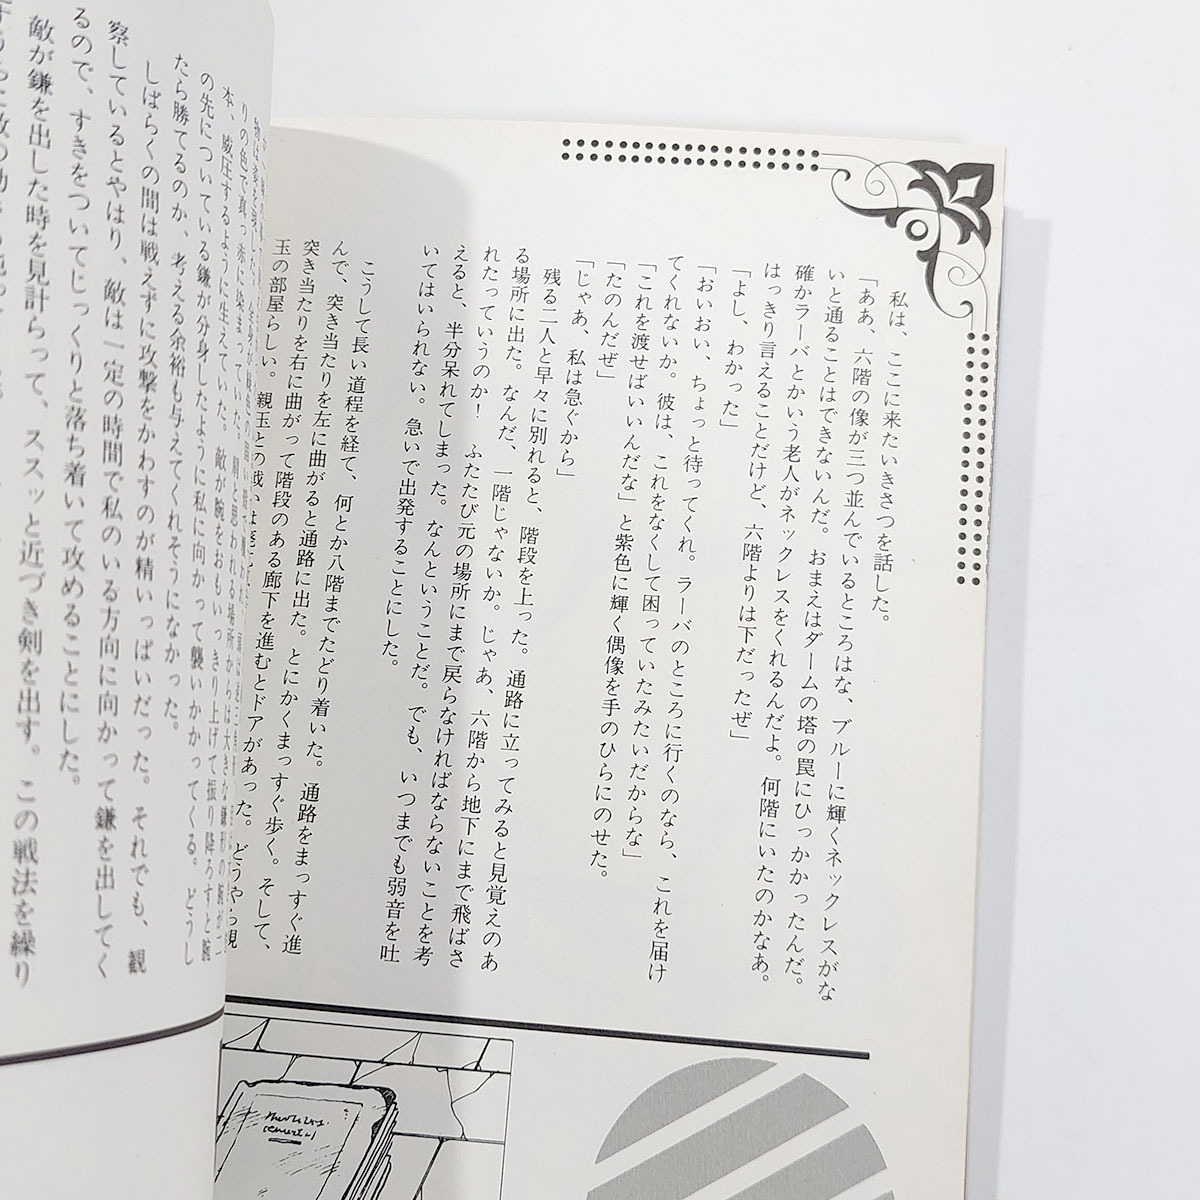 私は、ここに来たいきさつを話した。
「ああ、六階の像が三つ並んでいるところはな、ブルーに輝くネックレスがな
いと通ることはできないんだ。おまえはダームの塔の罠にひっかかったんだ。
確かラーバとかいう老人がネックレスをくれるんだよ。何階にいたのかなあ。
はっきり言えることだけど、六階よりは下だったぜ」
「よし、わかった」
「おいおい、ちょっと待ってくれ。ラーバのところに行くのなら、これを届け
てくれないか。彼は、これをなくして困っていたみたいだからな」
「これを渡せばいいんだな」と紫色に輝く偶像を手のひらにのせた。
「たのんだぜ」
「じゃあ、私は急ぐから」
残る二人と早々に別れると、階段を上った。通路に立ってみると見覚えのあ
る場所に出た。なんだ、一階じゃないか。じゃあ、六階から地下にまで飛ばさ
れたっていうのか！　ふたたび元の場所にまで戻らなければならないことを考
えると、半分呆れてしまった。なんということだ。でも、いつまでも弱音を吐
いてはいられない。急いで出発することにした。
こうして長い道程を経て、何とか八階までたどり着いた。通路をまっすぐ進
んで、突き当たりを左に曲がると通路に出た。とにかくまっすぐ歩く。そして、
突き当たりを右に曲がって階段のある廊下を進むとドアがあった。どうやら親
玉の部屋らしい。親玉との戦いは
りの色で真っ赤に染まっていた。胴と思われる場所からは大きな鎌形の腕が二
本、威圧するように生えていた。敵が腕をおもいっきり上げて振り降ろすと腕
の先についている鎌が分身したように私に向かって襲いかかってくる。どうし
たら勝てるのか、考える余裕も与えてくれそうになかった。
しばらくの間は戦えずに攻撃をかわすのが精いっぱいだった。それでも、観
察しているとやはり、敵は一定の時間で私のいる方向に向かって鎌を出してく
るので、すきをついてじっくりと落ち着いて攻めることにした。
敵が鎌を出した時を見計らって、ススッと近づき剣を出す。この戦法を繰り